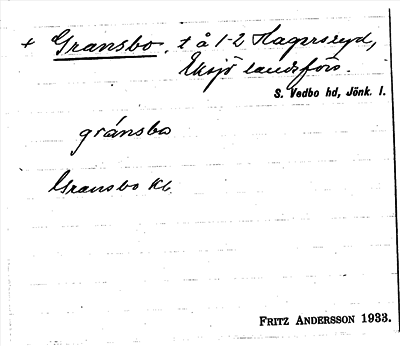 + Gransbo, t å 1-2 Hagersryd,
Eksjö landsförs.
S. Vedbo hd, Jönk. l.
gránsbo
Gransbo Kb
FRITZ ANDERSSON 1933.